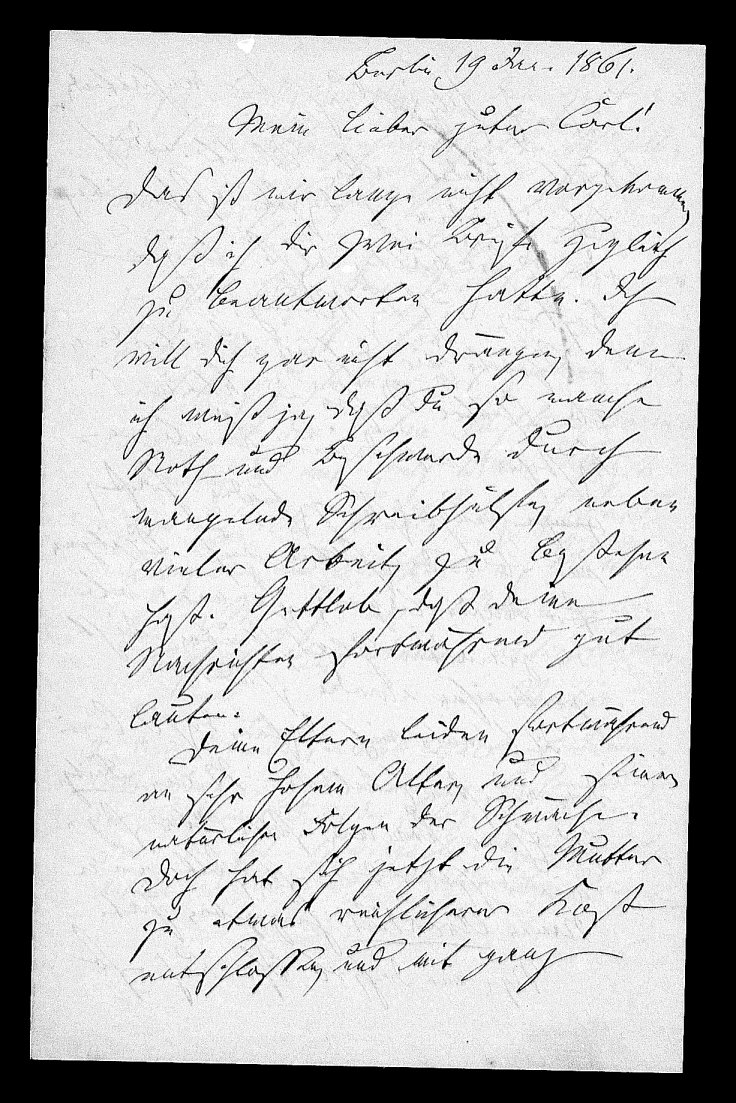 Berlin 19 Jan. 1861.
Mein lieber guter Carl!
Das ist mir lange nicht vorgekommen,
daß ich Dir zwei Briefe zugleich
zu beantworten hatte. Ich
will Dich gar nicht drängen, denn
ich weiß ja, daß Du so manche
Noth und Beschwerde durch
mangelnde Schreibhülfe, neben
vieler Arbeit, zu bestehen
hast. Gottlob, daß deine
Nachrichten fortwährend gut
lauten.
Deine Eltern leiden fortwährend
an sehr hohem Alter, und seinen
natürlichen Folgen der Schwäche.
Doch hat sich jetzt die Mutter
zu etwas reichlicherer Kost
entschlossen, und mit ganz